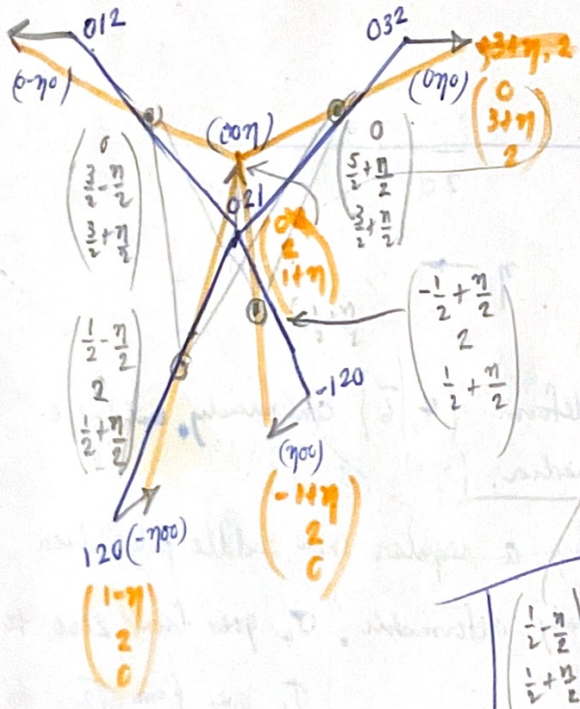 012
032
(0-η0)
(00η)
(0η0)
(0
3+η
2)
(0
3/2-η/2
3/2+η/2)
(0
5/2+η/2
3/2+η/2)
021
2
1+η
(-1/2+η/2
2
1/2+η/2)
(1/2-η/2
2
1/2+η/2)
-120
(η00)
(-1+η
2
0)
120
(-η00)
(1-η
2
0)
1/2-η/2
1/2+η/2